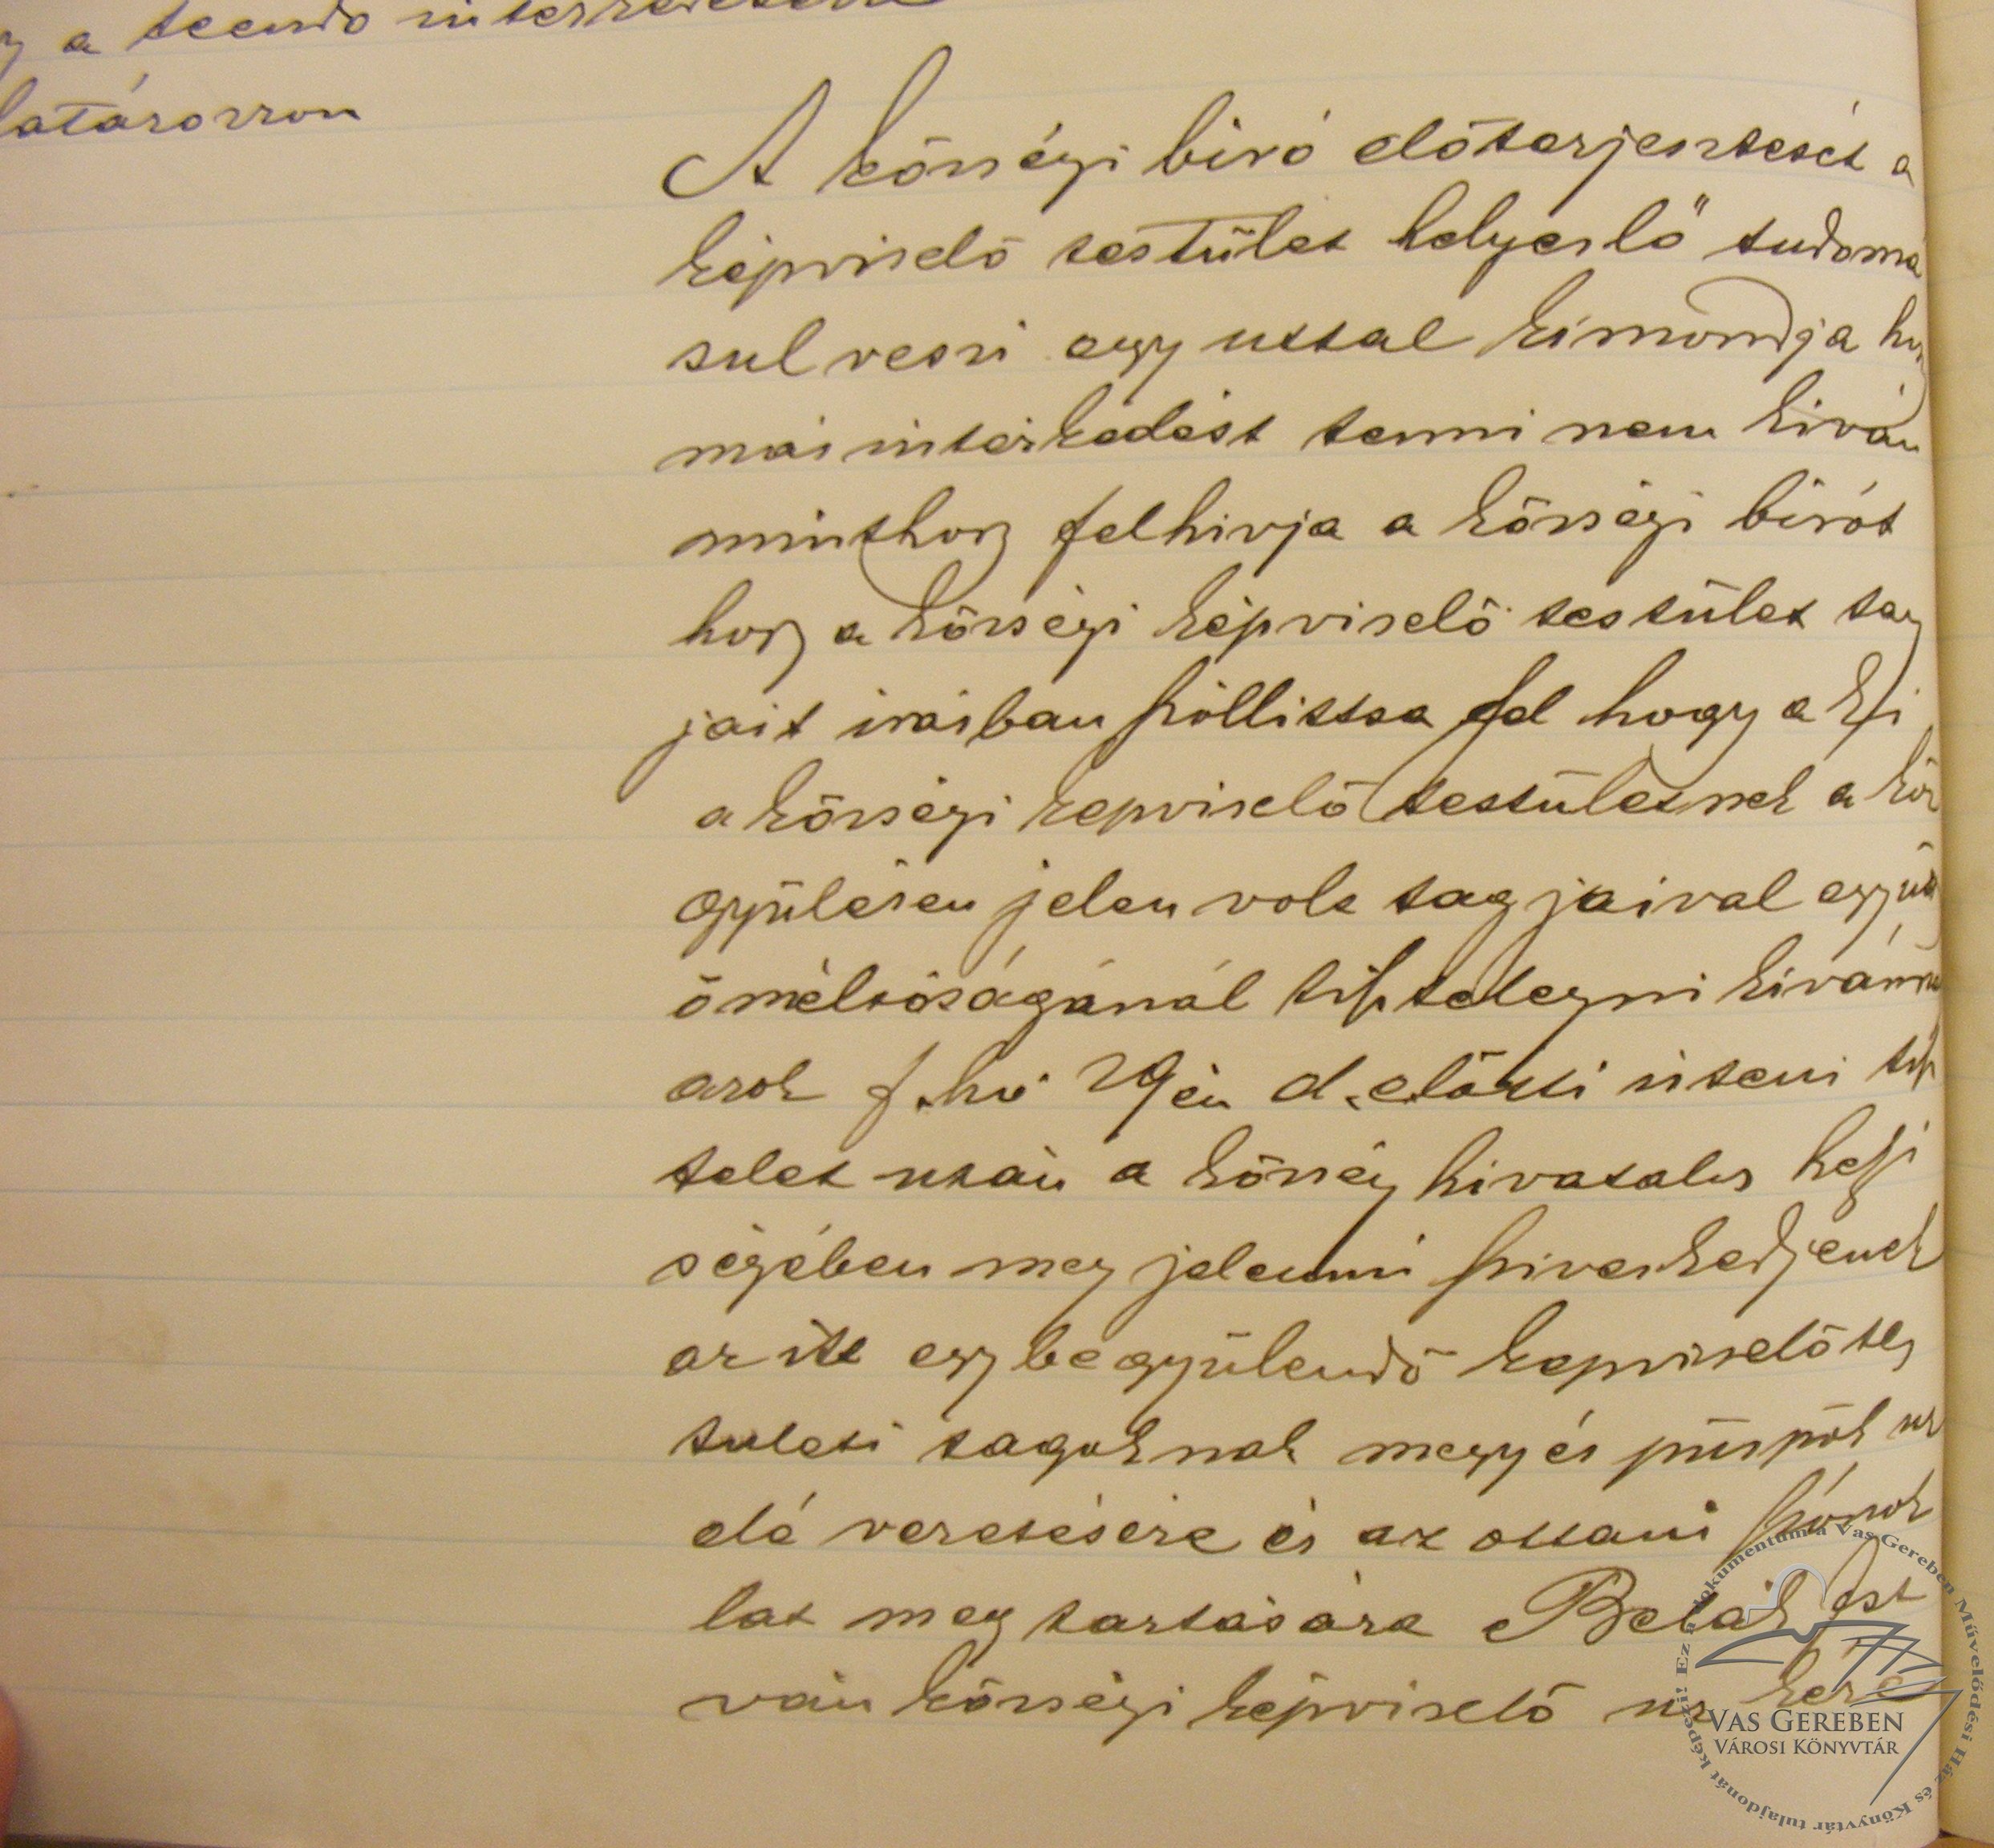 a teendő intézkedésekre
határozzon
A községi biró előterjesztését a
képviselő testület helyeslő tudomá
sul veszi egyuttal kimondja hogy
más intézkedést tenni nem kiván
minthogy felhivja a községi birót
hogy a községi képviselő testület tag
jait irásban szóllittsa fel hogy a ki
a községi képviselő testületnek a köz
gyülésen jelen volt tagjaival együtt
ő méltóságánál tisztelegni kivánna
azok f. hó 29én d. előtti isteni tisz
telet után a község hivatalos helyi
ségében meg jelenni sziveskedjenek
az itt egybegyülendő képviselőtes
tületi tagoknak megyés püspök ur
elé vezetésére és az ottani szónok
lat meg tartására Belák Ist
ván községi képviselő ur kére
Ez a dokumentum a Vas Gereben Művelődési Ház és Könyvtár tulajdonát képezi!
VAS GEREBEN
VÁROSI KÖNYVTÁR